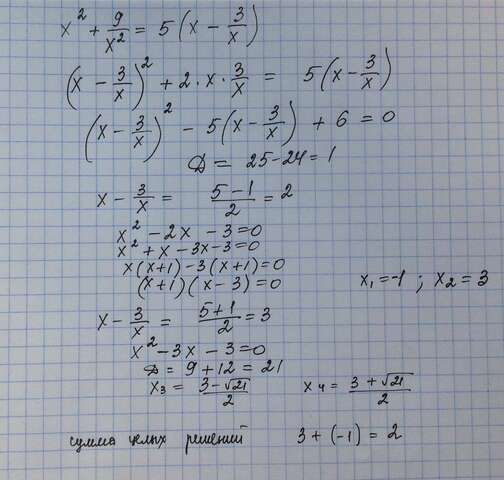 x² + 9/x² = 5(x − 3/x)
(x − 3/x)² + 2·x·3/x = 5(x − 3/x)
(x − 3/x)² − 5(x − 3/x) + 6 = 0
D = 25−24=1
x − 3/x = (5−1)/2 = 2
x² − 2x − 3=0
x² + x − 3x−3=0
x(x+1)−3(x+1)=0
(x+1)(x−3)=0 x₁=−1 ; x₂=3
x − 3/x = (5+1)/2 = 3
x² − 3x − 3=0
D = 9+12 = 21
x₃ = (3−√21)/2 x₄ = (3+√21)/2
сумма целых решений 3+(−1) = 2